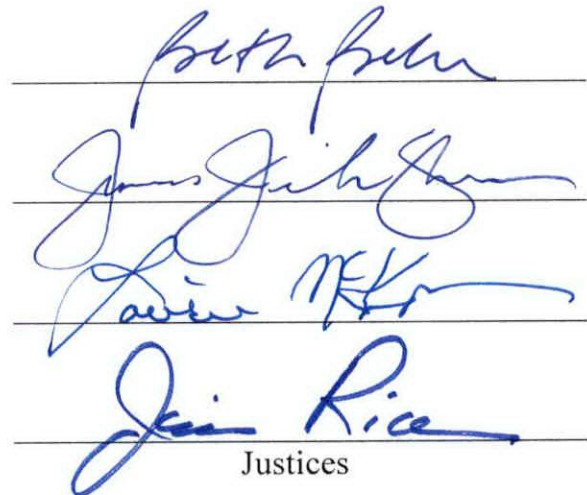 Beth Baker
James Jeremiah Shea
Laurie McKinnon
Jim Rice
Justices